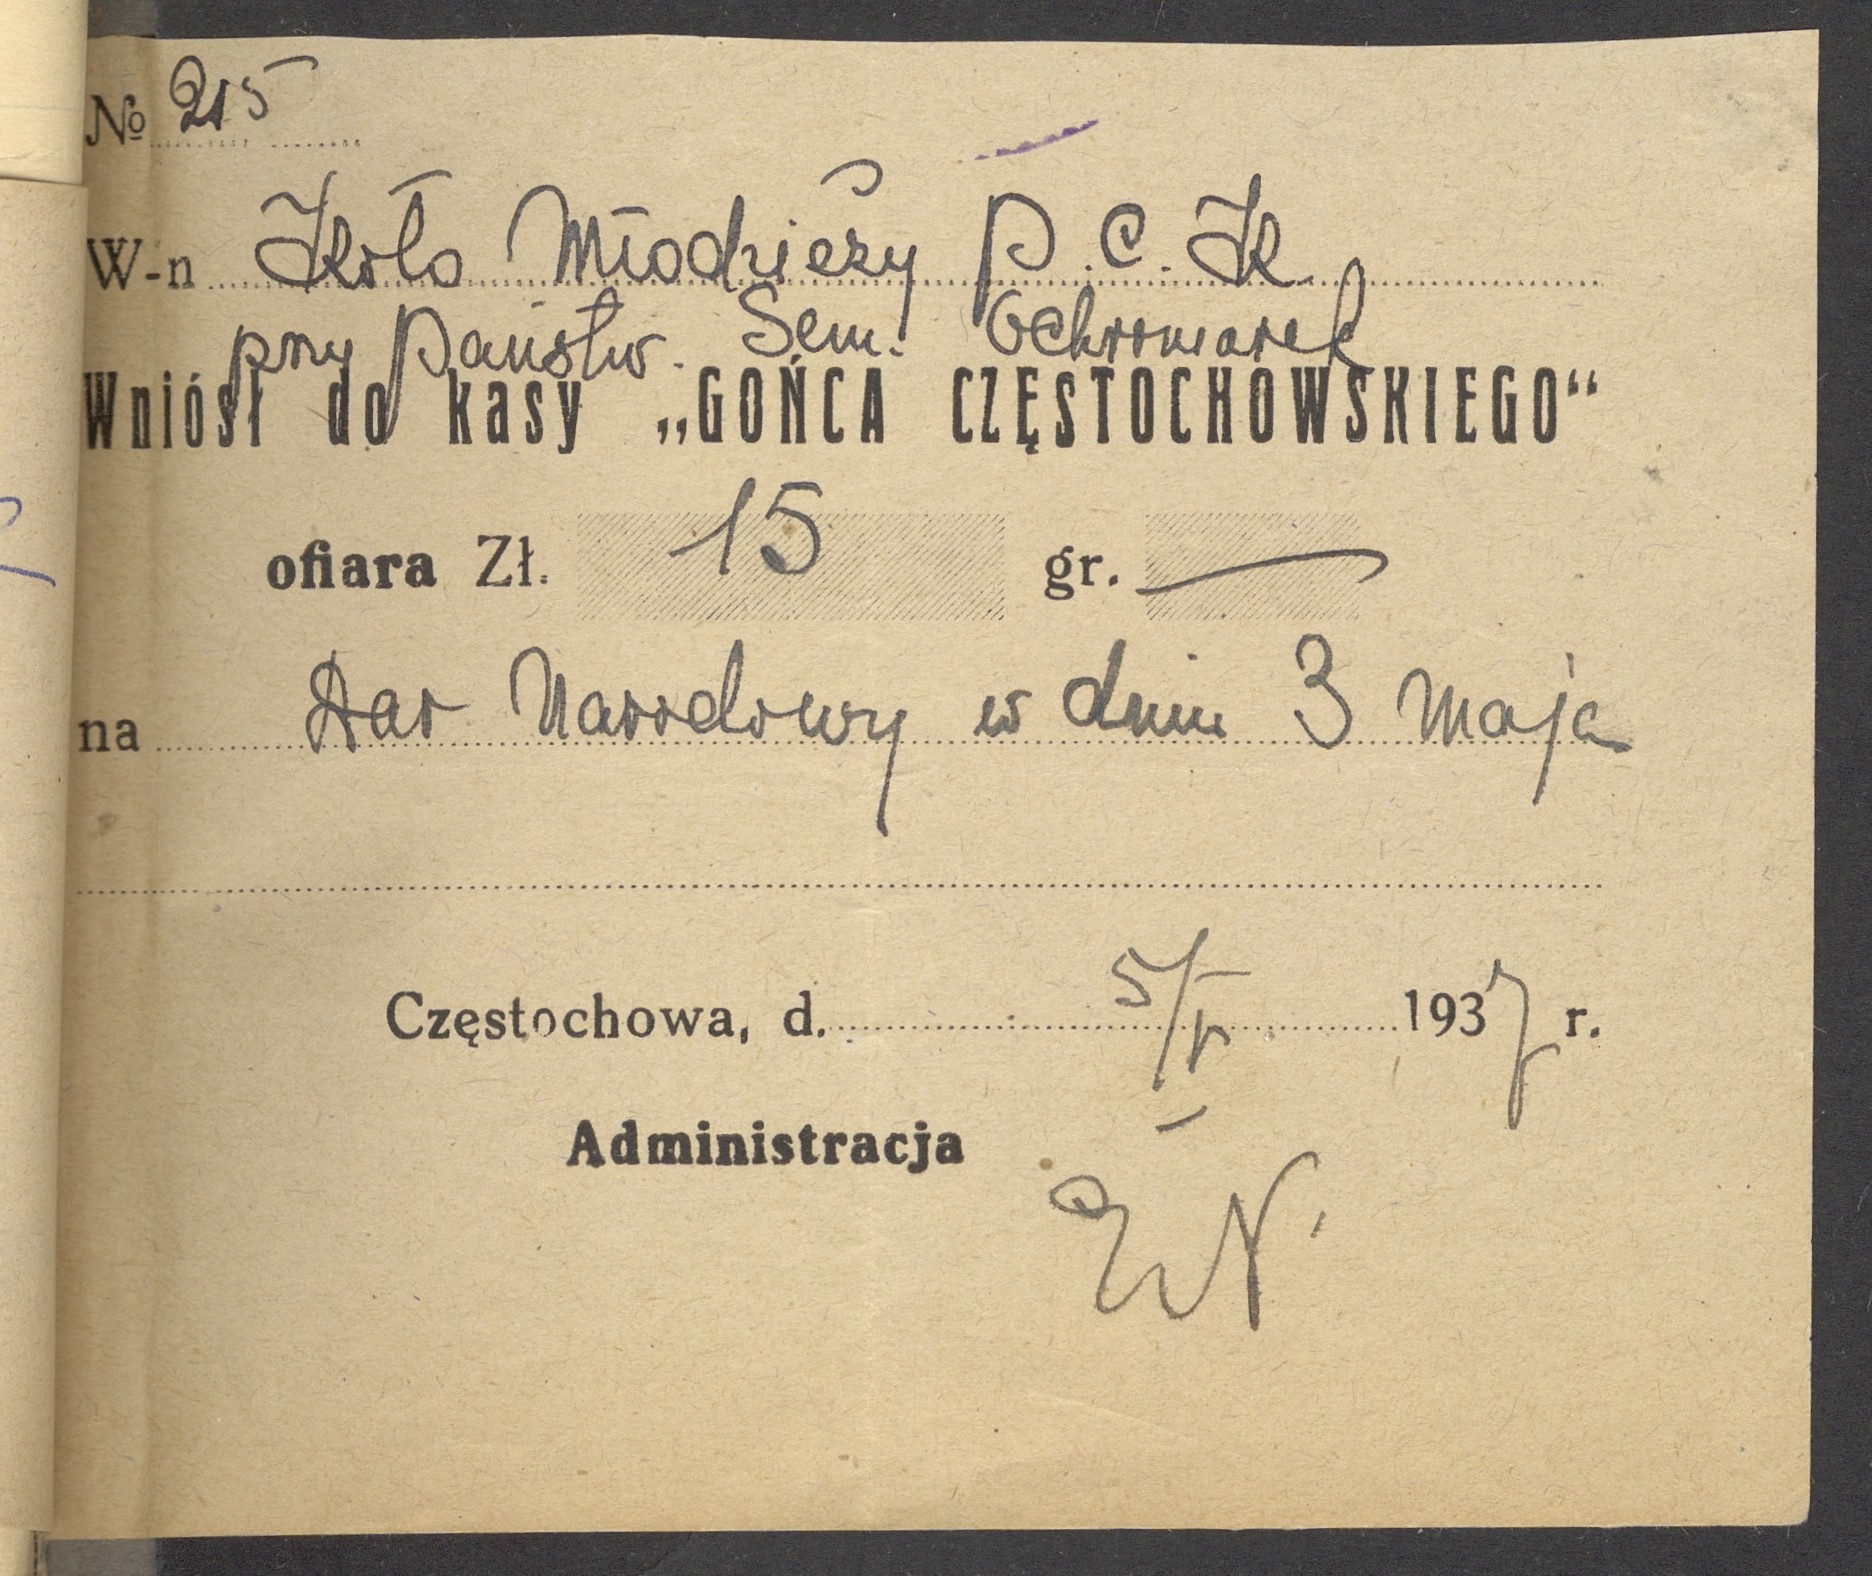 № 215
W-n Koło Młodzieży P. C. K.
przy Państw. Sem. Ochroniarek
Wniósł do kasy „GOŃCA CZĘSTOCHOWSKIEGO“
ofiara Zł. 15 gr. —
na Dar Narodowy w dniu 3 maja
Częstochowa, d. 5/V 1937 r.
Administracja